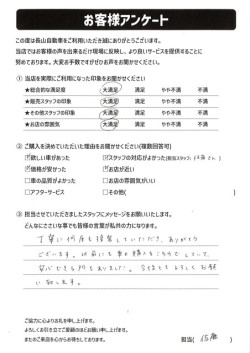 お客様アンケート
この度は長山自動車をご利用いただき誠にありがとうございます。
当店ではお客様の声を出来るだけ現場に反映し、より良いサービスを提供することに
努めております。大変お手数ですがぜひお声をお聞かせください。
① 当店を実際にご利用になった印象をお聞かせください
★総合的な満足度 大満足 満足 やや不満 不満
★販売スタッフの印象 大満足 満足 やや不満 不満
★その他スタッフの印象 大満足 満足 やや不満 不満
★お店の雰囲気 大満足 満足 やや不満 不満
② ご購入を決めていただいた理由をお聞かせください(複数回答可)
欲しい車があった スタッフの対応がよかった(担当スタッフ: さん)
価格が安かった お店が近い
車の品質がよかった お店の雰囲気がいい
アフターサービス その他( )
③ 担当させていただきましたスタッフにメッセージをお願いいたします。
どんなにささいな事でも皆様の言葉が私共の力になります。
丁寧に何度も接客していただき、ありがとう
ございます。以前にも車の購入をこちらでしていて、
安心きる所もありました。今後ともよろしくお願
い致します。
ご協力に心よりお礼を申し上げます。
よろしくお引き立てご愛顧のほどお願い申し上げます。
またのご来店を心からお待ちしております。
担当( )